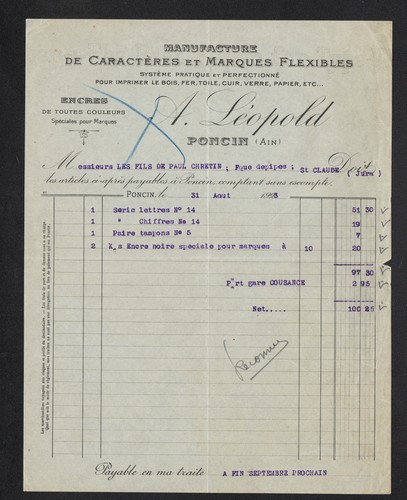 MANUFACTURE
DE CARACTÈRES ET MARQUES FLEXIBLES
SYSTÈME PRATIQUE ET PERFECTIONNÉ
POUR IMPRIMER LE BOIS, FER, TOILE, CUIR, VERRE, PAPIER, ETC...
ENCRES
DE TOUTES COULEURS
Spéciales pour Marques
A. Léopold
PONCIN (AIN)
Messieurs LES FILS DE PAUL CHRETIN ; Fque depipes ; St CLAUDE Doit (Jura)
les articles ci-après payables à Poncin, comptant sans escompte.
PONCIN, le 31 Aout
1 Serie lettres No 14 51 30
1 " Chiffres No 14 19
1 Paire tampons No 5 7
2 Kos Encre noire speciale pour marques à 10 20
97 30
Port gare COUSANCE 2 95
Net..... 100 25
Payable en ma traite A FIN SEPTEMBRE PROCHAIN